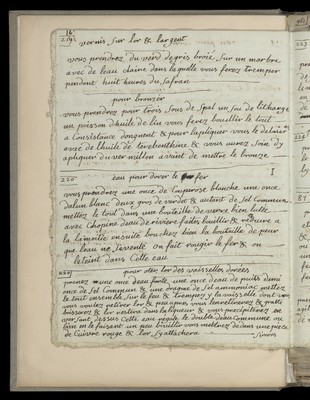 16
219
vernis Sur lor & largent
vous prendrez du verd de gris broié Sur un marbre
avec de leau claire dans laquelle vous ferez tremper
pendant huit heures du Safran
pour bronzer
vous prendrez pour trois Sous de Spal un Sou de litharge
un poisson dhuile de lin vous ferez bouillir le tout
a Consistance donguent & pour lapliquer vous le
avec de lhuile de terebenthine & vous aurez Soin dy
apliquer du vermillon avant de mettre le bronze
220 eau pour dorer le fer
vous prendrez une once de Couperose blanche une once
dalun blanc deux gros de verdet & autant de Sel Commun
mettez le tout dans une bouteille de verre bien lutée
avec Chopine deau de riviere faites bouillir & reduire a
la ensuite bouchez bien la bouteille de peur
que leau ne Sevente on fait rougir le fer & on
leteint dans Cette eau
221 pour oter lor des vaisselles dorées
prenez une once deau forte, une once deau de puits demi
once de Sel Commun & une dragme de Sel ammoniac mettez
le tout ensemble Sur le feu & trempez y la vaisselle dont
vous voulez retirer lor & peu apres, vous
lor restera dans la liqueur & vous precipiterez en
versant dessus Cette eau regale le double deau Commune ou
bien en le faisant un peu bouillir vous mettrez dedans une piece
de Cuivre rouge & lor Sy attachera